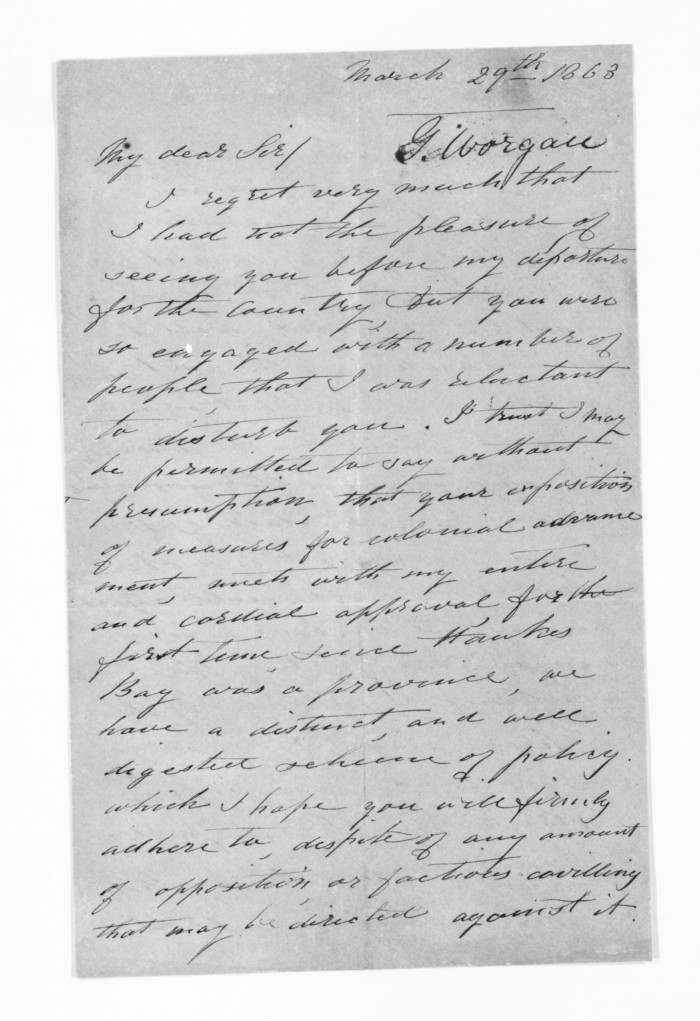 March 29th 1863
G. Worgan
My dear Sir/
I regret very much that
I had not the pleasure of
seeing you before my departure
for the country, but you were
so engaged with a number of
people that I was reluctant
to disturb you. I trust I may
be permitted to say without
presumption, that your exposition
of measures for colonial advance
ment, meets with my entire
and cordial approval, for the
first time since Hawkes
Bay was a province, we
have a distinct, and well
digested scheme of policy.
which I hope you will firmly
adhere to, despite of any amount
of opposition, or factious cavilling
that may be directed against it.